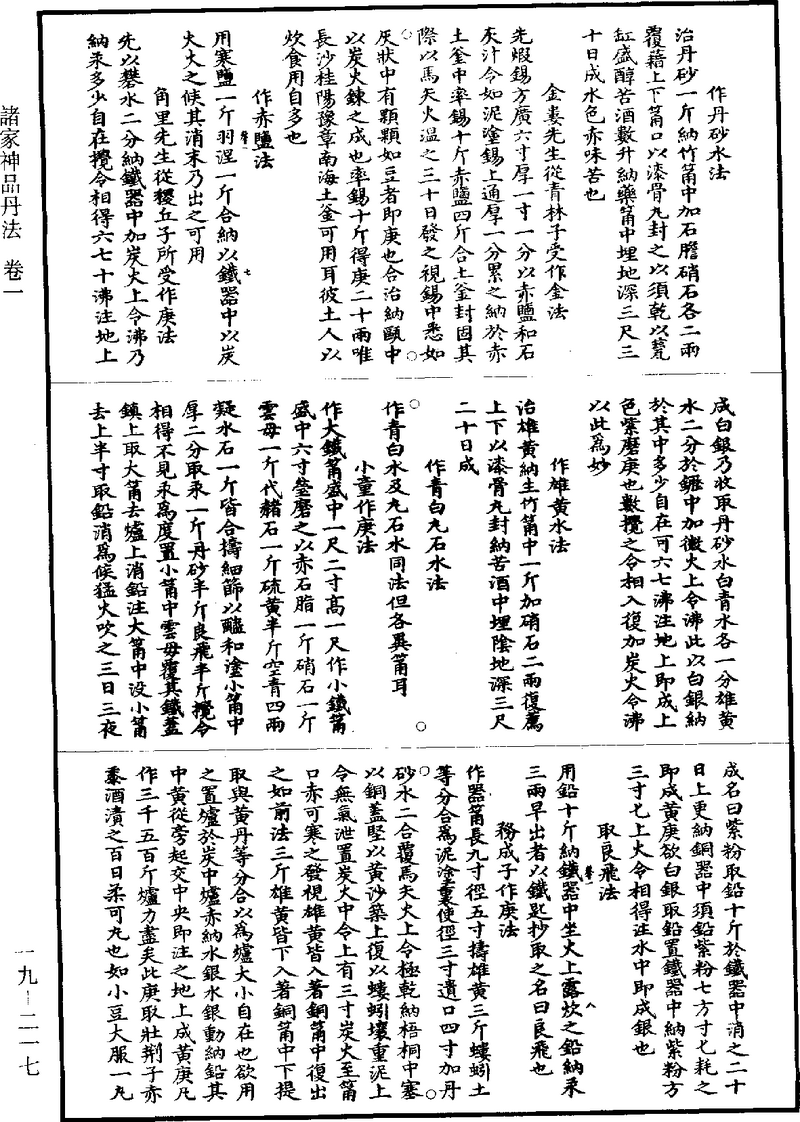 諸家神品丹法 卷一
作丹砂水法
治丹砂一斤納竹筩中加石膽硝石各二兩
覆藉上下筩口以漆骨丸封之以須乾以甕
缸盛醇苦酒數升納藥筩中埋地深三尺三
十日成水色赤味苦也
金婁先生從青林子受作金法
先蝦錫方廣六寸厚一寸一分以赤鹽和石
灰汁令如泥塗錫上通厚一分累之納於赤
土釜中率錫十斤赤鹽四斤合土釜封固其
際以馬矢火溫之三十日發之視錫中悉如
灰狀中有顆顆如豆者即庚也合治納甌中
以炭火鍊之成也率錫十斤得庚二十兩唯
長沙桂陽豫章南海土釜可用耳彼土人以
炊食用自多也
作赤鹽法
用寒鹽一斤羽涅一斤合納以鐵器中以炭
火火之候其消末乃出之可用
角里先生從稷丘子所受作庚法
先以礬水二分納鐵器中加炭火上令沸乃
納汞多少自在攪令相得六七十沸注地上
成白銀乃收取丹砂水白青水各一分雄黃
水二分於鎺中加微火上令沸此以白銀納
於其中多少自在可六七沸注地上即成上
色紫磨庚也數攪之令相入復加炭火令沸
以此為妙
作雄黃水法
治雄黃納生竹筩中一斤加硝石二兩復薦
上下以漆骨丸封納苦酒中埋陰地深三尺
二十日成
作青白丸石水法
作青白水及丸石水同法但各異筩耳
小童作庚法
作大鐵筩盛中一尺二寸高一尺作小鐵筩
盛中六寸瑩磨之以赤石脂一斤硝石一斤
雲母一斤代赭石一斤硫黃半斤空青四兩
凝水石一斤皆合擣細篩以醯和塗小筩中
厚二分取汞一斤丹砂半斤良飛半斤攪令
相得不見汞為度置小筩中雲母覆其鐵蓋
鎮上取大筩去爐上消鉛注大筩中没小筩
去上半寸取鉛消為候猛火吹之三日三夜
成名曰紫粉取鉛十斤於鐵器中消之二十
日上更納銅器中須鉛紫粉七方寸匕耗之
即成黃庚欲白銀取鉛置鐵器中納紫粉方
三寸匕上火令相得注水中即成銀也
取良飛法
用鉛十斤納鐵器中坐火上露炊之鉛納汞
三兩早出者以鐵匙抄取之名曰良飛也
務成子作庚法
作器筩長九寸徑五寸擣雄黃三斤螻蚓土
等分合為泥塗裏使徑三寸遺口四寸加丹
砂水二合覆馬矢火上令極乾納梧桐中塞
以銅蓋堅以黃沙築上復以螻蚓壤重泥上
令無氣泄置炭火中令上有三寸炭火至筩
口赤可寒之發視雄黃皆入著銅筩中復出
之如前法三斤雄黃皆下入著銅筩中下提
取與黃丹等分合以為爐大小自在也欲用
之置爐於炭中爐赤納水銀水銀動納鉛其
中黃從旁起交中央即注之地上成黃庚凡
作三千五百斤爐力盡矣此庚取壯荊子赤
黍酒漬之百日柔可丸也如小豆大服一丸
一九－二一七